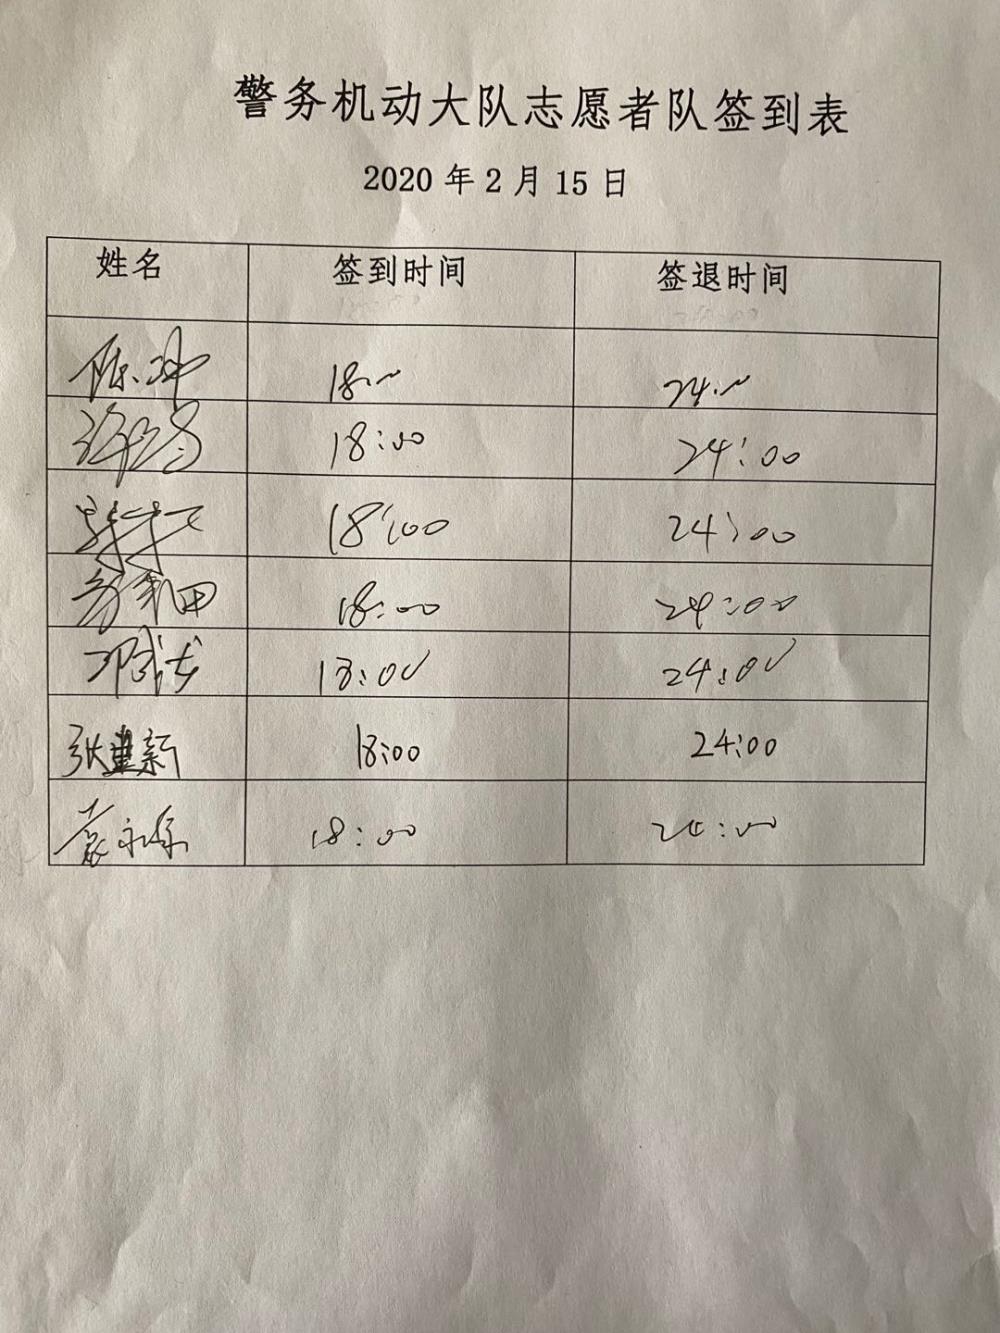 警务机动大队志愿者队签到表
2020 年 2 月 15 日
姓名 签到时间 签退时间
陈冲 18:00 24:00
18:00 24:00
18:00 24:00
18:00 24:00
18:00 24:00
张建新 18:00 24:00
袁永 18:00 24:00